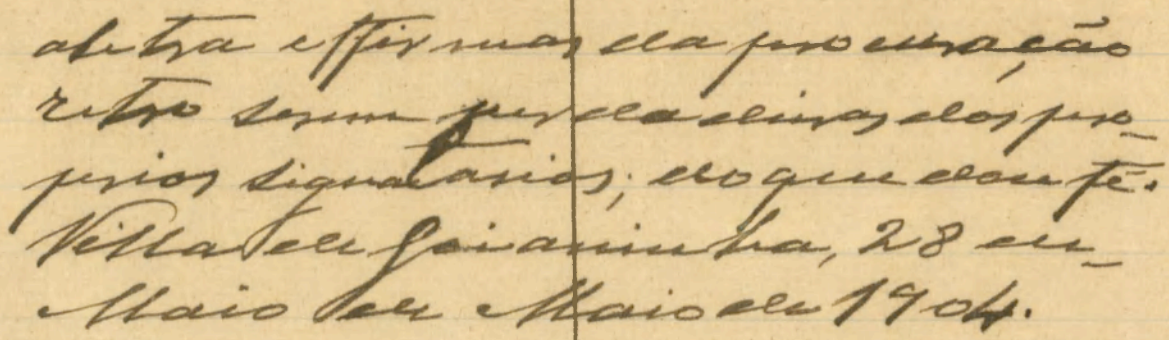 a letra e firmas da procuração
retro serem verdadeiras dos pro-
prios signatarios; do que dou fé.
Villa de Goianinha, 28 de
Maio de Maio de 1904.